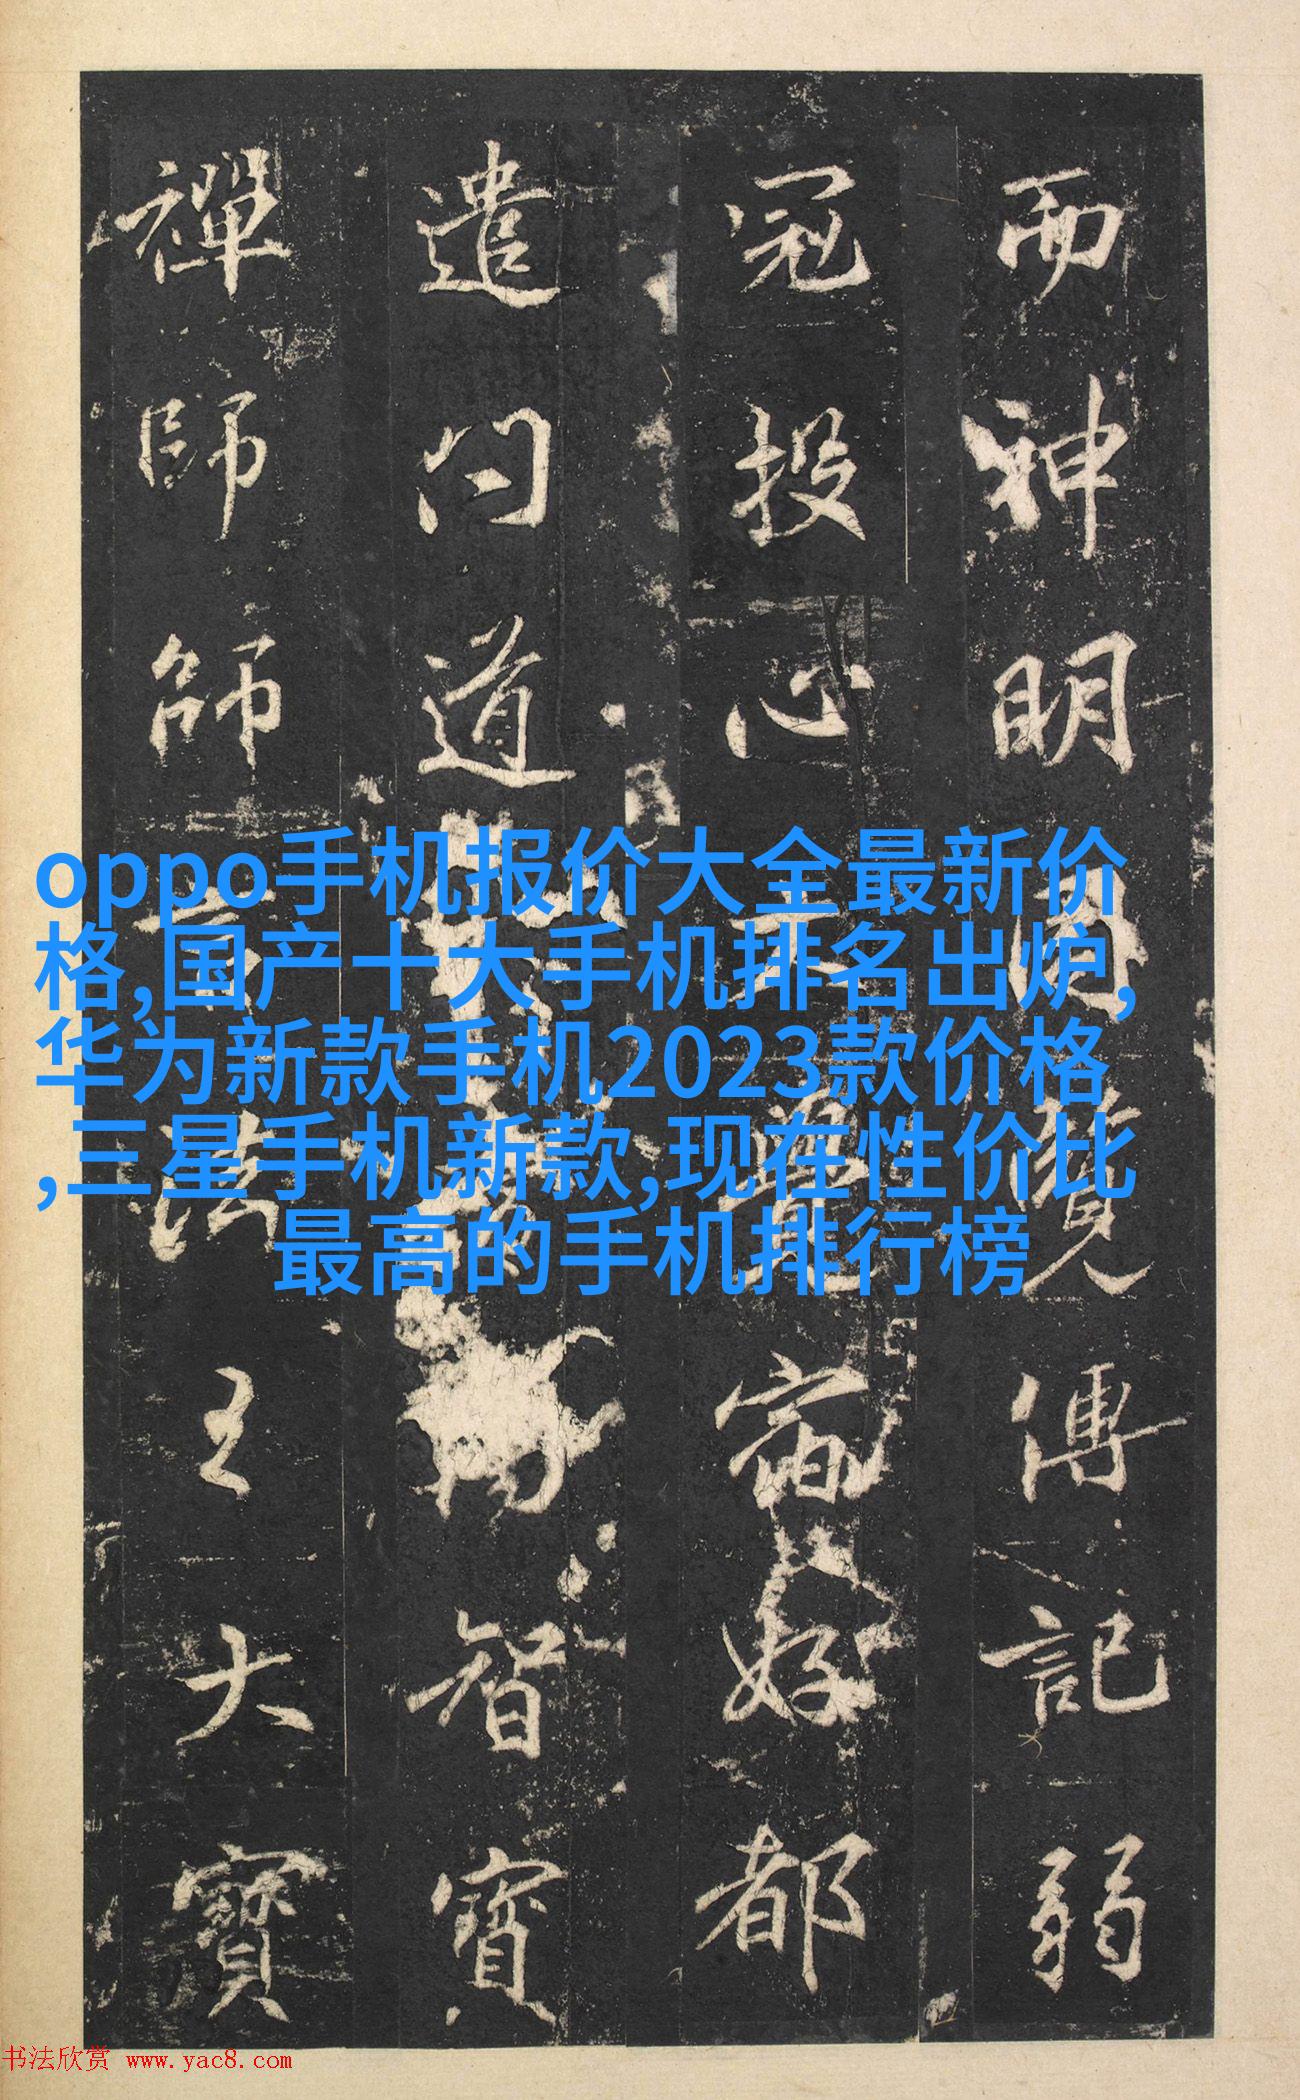 而神明覽傳記弱
冠投心正覺宿好都
遣問道智寶
禪師師法王大寶
oppo手机报价大全最新价
格,国产十大手机排名出炉,
华为新款手机2023款价格
,三星手机新款,现在性价比
最高的手机排行榜
书法欣赏 www.yac8.com